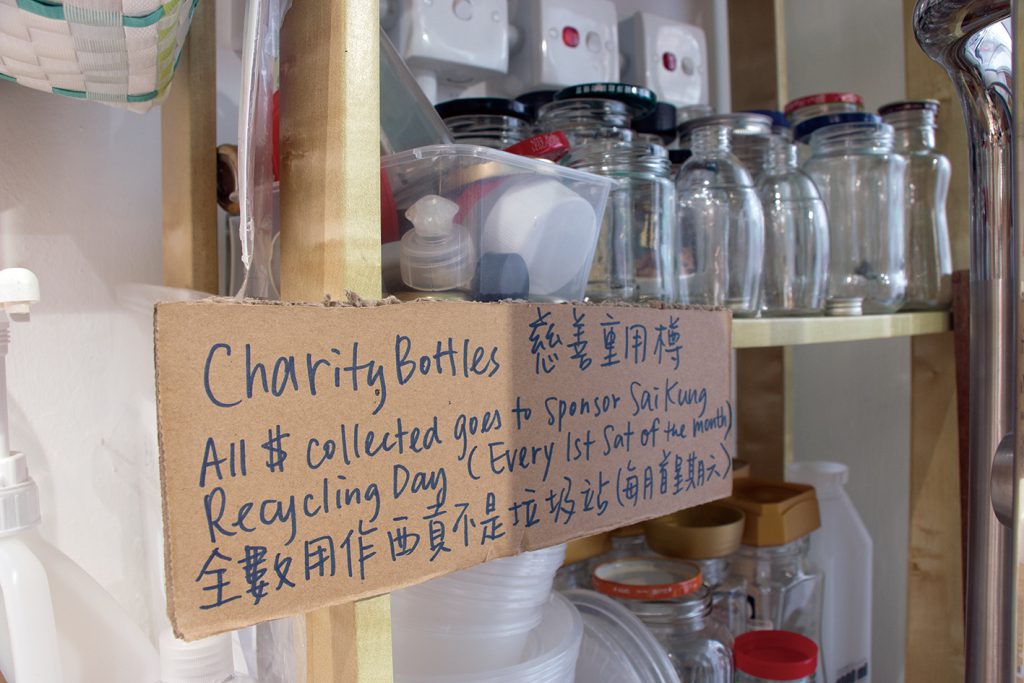 Charity Bottles 慈善重用樽
All $ collected goes to sponsor Sai Kung
Recycling Day (Every 1st Sat of the month)
全數用作西貢不是垃圾站 (每月首星期六)